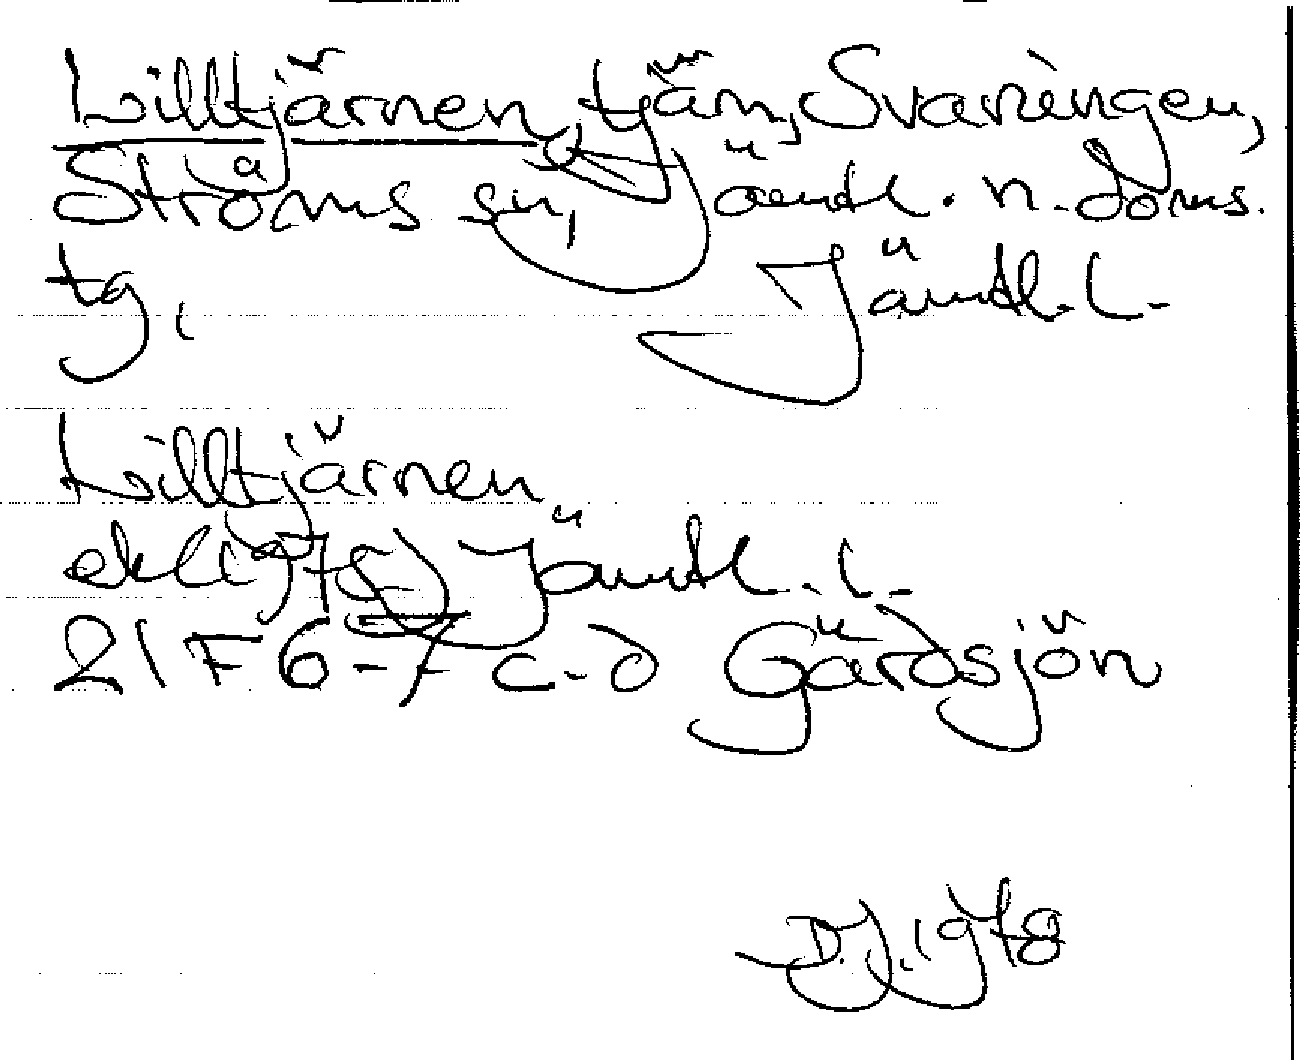 Lilltjärnen, tjärn, Svaningen,
Ströms sn, Jämtl. n. doms.
tg, Jämtl. l.
Lilltjärnen
ekk (1975) Jämtl. l.
21 F 6-7 c-d Gärdsjön
D.J. 1978